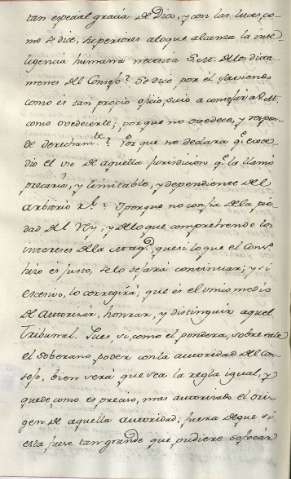 tan especial gracia de Dios, y con las luces, co-
mo se dice, superiores a lo que alcanza la inte-
ligencia humana necesita Dios de los dicta-
menes del Consejo? Se dice por el
como es tan propio a consultar al Rey
como obedecerle; porque no obedece, y respon-
de derecham.te? Porque no declara q.e exce-
dio el uso de aquella jurisdiccion q.e la llamó
precario, y limitable, y dependiente del
arbitrio R.l? Y porque no confia de la pie-
dad del Rey, y de lo que comprehende los
intereses de la Mag.d que si lo que el Cons.o
hizo es justo, se lo dejará continuar; y si
excesivo, lo corregirá, que es el unico medio
de autorizar, honrar, y distinguir aquel
Tribunal. Pues si como el pondera, sobre este
el soberano poder con la autoridad del Con-
sejo, bien será que sea la regla igual, y
quede como es preciso, mas autorizado el ori-
gen de aquella autoridad, fuera de que si
esta fuese tan grande que pudiere sofocar